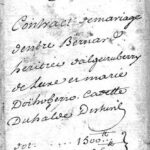 Contract de mariage
d'entre Bernard
heritier d'algueruberry
de Luxe et marie
Doihobeno Cadette
Duhalde Desterit
dot : 1500ᵗᵗ